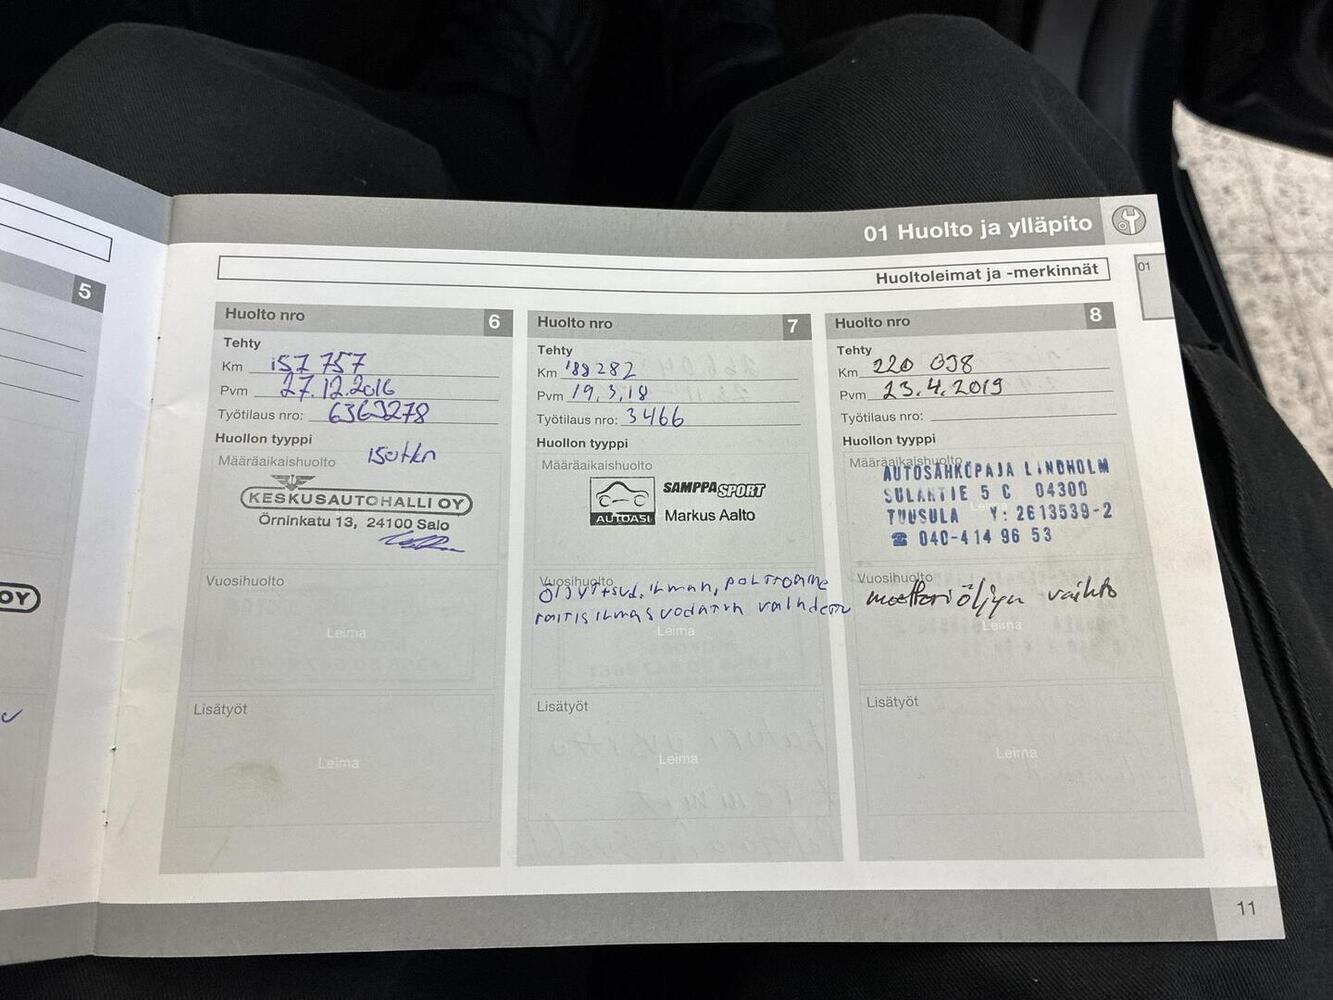 01 Huolto ja ylläpito
Huoltoleimat ja -merkinnät
01
5
OY
Huolto nro 6
Tehty
Km 157 757
Pvm 27.12.2016
Työtilaus nro: 6363278
Huollon tyyppi
Määräaikaishuolto 150tkm
KESKUSAUTOHALLI OY
Örninkatu 13, 24100 Salo
Vuosihuolto
Leima
Lisätyöt
Leima
Huolto nro 7
Tehty
Km 188282
Pvm 19.3.18
Työtilaus nro: 3466
Huollon tyyppi
Määräaikaishuolto
AUTOASI
SAMPPA SPORT
Markus Aalto
Vuosihuolto
Öljyt+sud. ilman, polttoaine
raitisilmasuodatin vaihdettu
Leima
Lisätyöt
Leima
Huolto nro 8
Tehty
Km 220 038
Pvm 23.4.2019
Työtilaus nro:
Huollon tyyppi
Määräaikaishuolto
AUTOSÄHKÖPAJA LINDHOLM
SULANTIE 5 C 04300
TUUSULA Y: 2613539-2
☎ 040-414 96 53
Vuosihuolto
moottoriöljyn vaihto
Leima
Lisätyöt
Leima
11